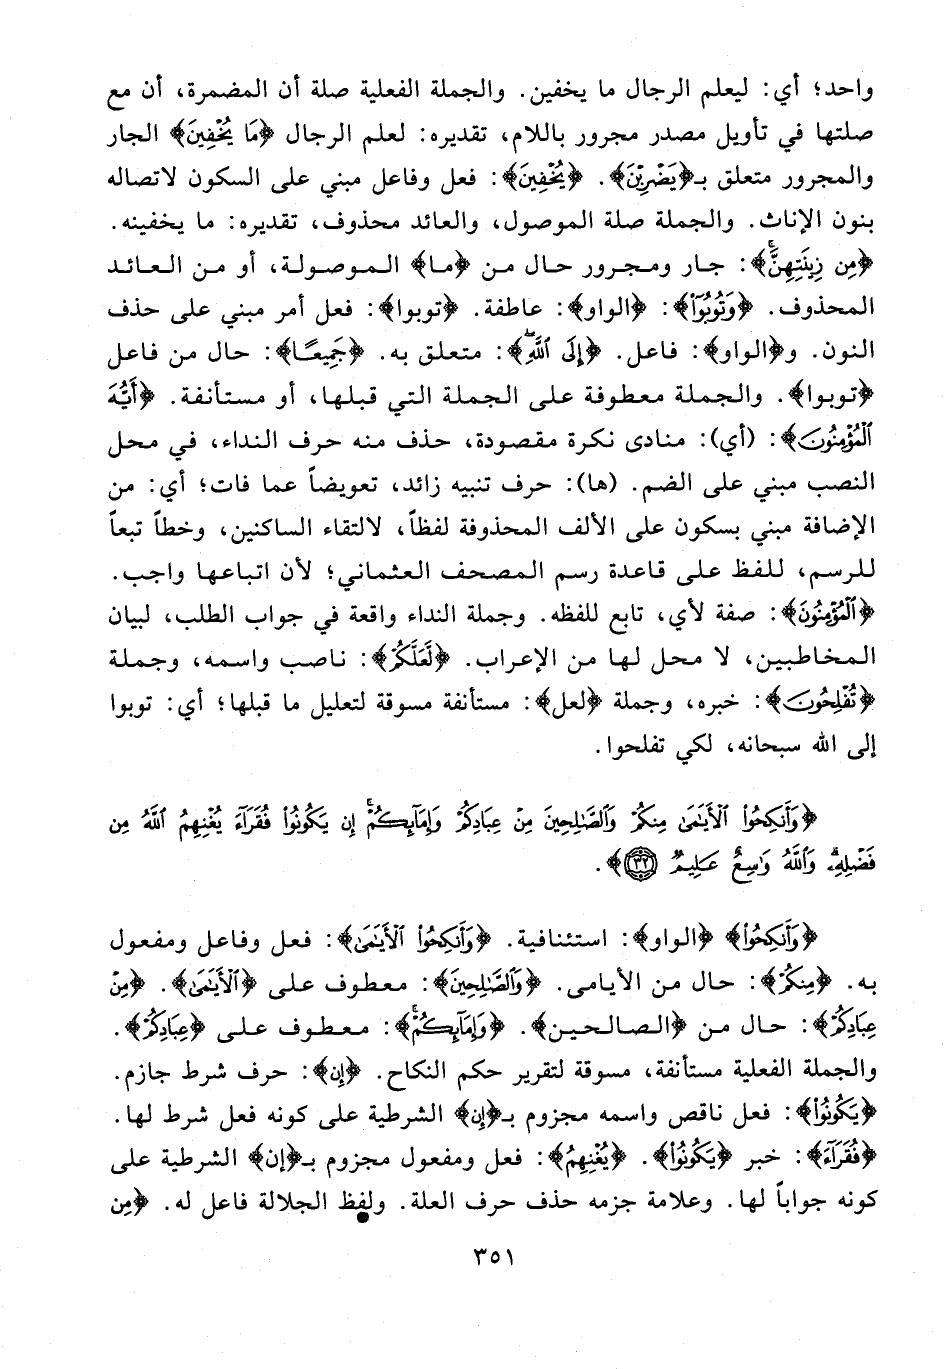 واحد؛ أي: ليعلم الرجال ما يخفين. والجملة الفعلية صلة أن المضمرة، أن مع
صلتها في تأويل مصدر مجرور باللام، تقديره: لعلم الرجال ﴿مَا يُخْفِينَ﴾ الجار
والمجرور متعلق بـ﴿يَضْرِبْنَ﴾. ﴿يُخْفِينَ﴾: فعل وفاعل مبني على السكون لاتصاله
بنون الإناث. والجملة صلة الموصول، والعائد محذوف، تقديره: ما يخفينه.
﴿مِن زِينَتِهِنَّۚ﴾: جار ومجرور حال من ﴿ما﴾ الموصولة، أو من العائد
المحذوف. ﴿وَتُوبُوٓا۟﴾: ﴿الواو﴾: عاطفة. ﴿توبوا﴾: فعل أمر مبني على حذف
النون. و﴿الواو﴾: فاعل. ﴿إِلَى ٱللَّهِۖ﴾: متعلق به. ﴿جَمِيعًا﴾: حال من فاعل
﴿توبوا﴾. والجملة معطوفة على الجملة التي قبلها، أو مستأنفة. ﴿أَيُّهَ
ٱلْمُؤْمِنُونَ﴾: (أي): منادى نكرة مقصودة، حذف منه حرف النداء، في محل
النصب مبني على الضم. (ها): حرف تنبيه زائد، تعويضاً عما فات؛ أي: من
الإضافة مبني بسكون على الألف المحذوفة لفظاً، لالتقاء الساكنين، وخطاً تبعاً
للرسم، للفظ على قاعدة رسم المصحف العثماني؛ لأن اتباعها واجب.
﴿ٱلْمُؤْمِنُونَ﴾: صفة لأي، تابع للفظه. وجملة النداء واقعة في جواب الطلب، لبيان
المخاطبين، لا محل لها من الإعراب. ﴿لَعَلَّكُمْ﴾: ناصب واسمه، وجملة
﴿تُفْلِحُونَ﴾: خبره، وجملة ﴿لعل﴾: مستأنفة مسوقة لتعليل ما قبلها؛ أي: توبوا
إلى الله سبحانه، لكي تفلحوا.
﴿وَأَنكِحُوا۟ ٱلْأَيَٰمَىٰ مِنكُمْ وَٱلصَّٰلِحِينَ مِنْ عِبَادِكُمْ وَإِمَآئِكُمْۚ إِن يَكُونُوا۟ فُقَرَآءَ يُغْنِهِمُ ٱللَّهُ مِن
فَضْلِهِۦۗ وَٱللَّهُ وَٰسِعٌ عَلِيمٌ ٣٢﴾.
﴿وَأَنكِحُوا۟﴾ ﴿الواو﴾: استئنافية. ﴿وَأَنكِحُوا۟ ٱلْأَيَٰمَىٰ﴾: فعل وفاعل ومفعول
به. ﴿مِنكُمْ﴾: حال من الأيامى. ﴿وَٱلصَّٰلِحِينَ﴾: معطوف على ﴿ٱلْأَيَٰمَىٰ﴾. ﴿مِنْ
عِبَادِكُمْ﴾: حال من ﴿الصالحين﴾. ﴿وَإِمَآئِكُمْۚ﴾: معطوف على ﴿عِبَادِكُمْ﴾.
والجملة الفعلية مستأنفة، مسوقة لتقرير حكم النكاح. ﴿إن﴾: حرف شرط جازم.
﴿يَكُونُوا۟﴾: فعل ناقص واسمه مجزوم بـ﴿إن﴾ الشرطية على كونه فعل شرط لها.
﴿فُقَرَآءَ﴾: خبر ﴿يَكُونُوا۟﴾. ﴿يُغْنِهِمُ﴾: فعل ومفعول مجزوم بـ﴿إن﴾ الشرطية على
كونه جواباً لها. وعلامة جزمه حذف حرف العلة. ولفظ الجلالة فاعل له. ﴿مِن
٣٥١